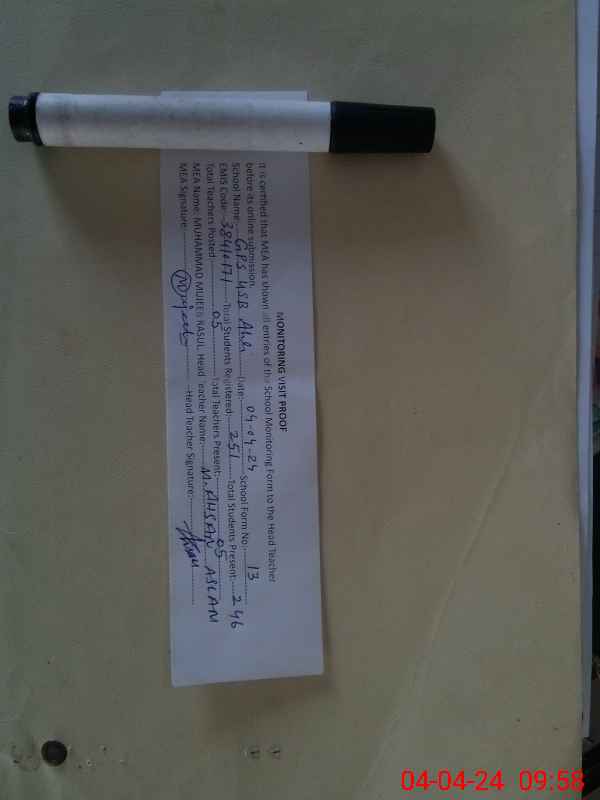 MONITORING VISIT PROOF
It is certified that MEA has shown all entries of the School Monitoring Form to the Head Teacher
before its online submission.
School Name:-----GPS 4SB -----Date:----04-04-24-----School Form No:----13
EMIS Code:--38410171-----Total Students Registered:----251-----Total Students Present:----246
Total Teachers Posted:--------05--------Total Teachers Present:--------05
MEA Name: MUHAMMAD MUJEEB RASUL, Head Teacher Name:----M. AHSAN ASLAM
MEA Signature:----------------Head Teacher Signature:----------------
04-04-24 09:58